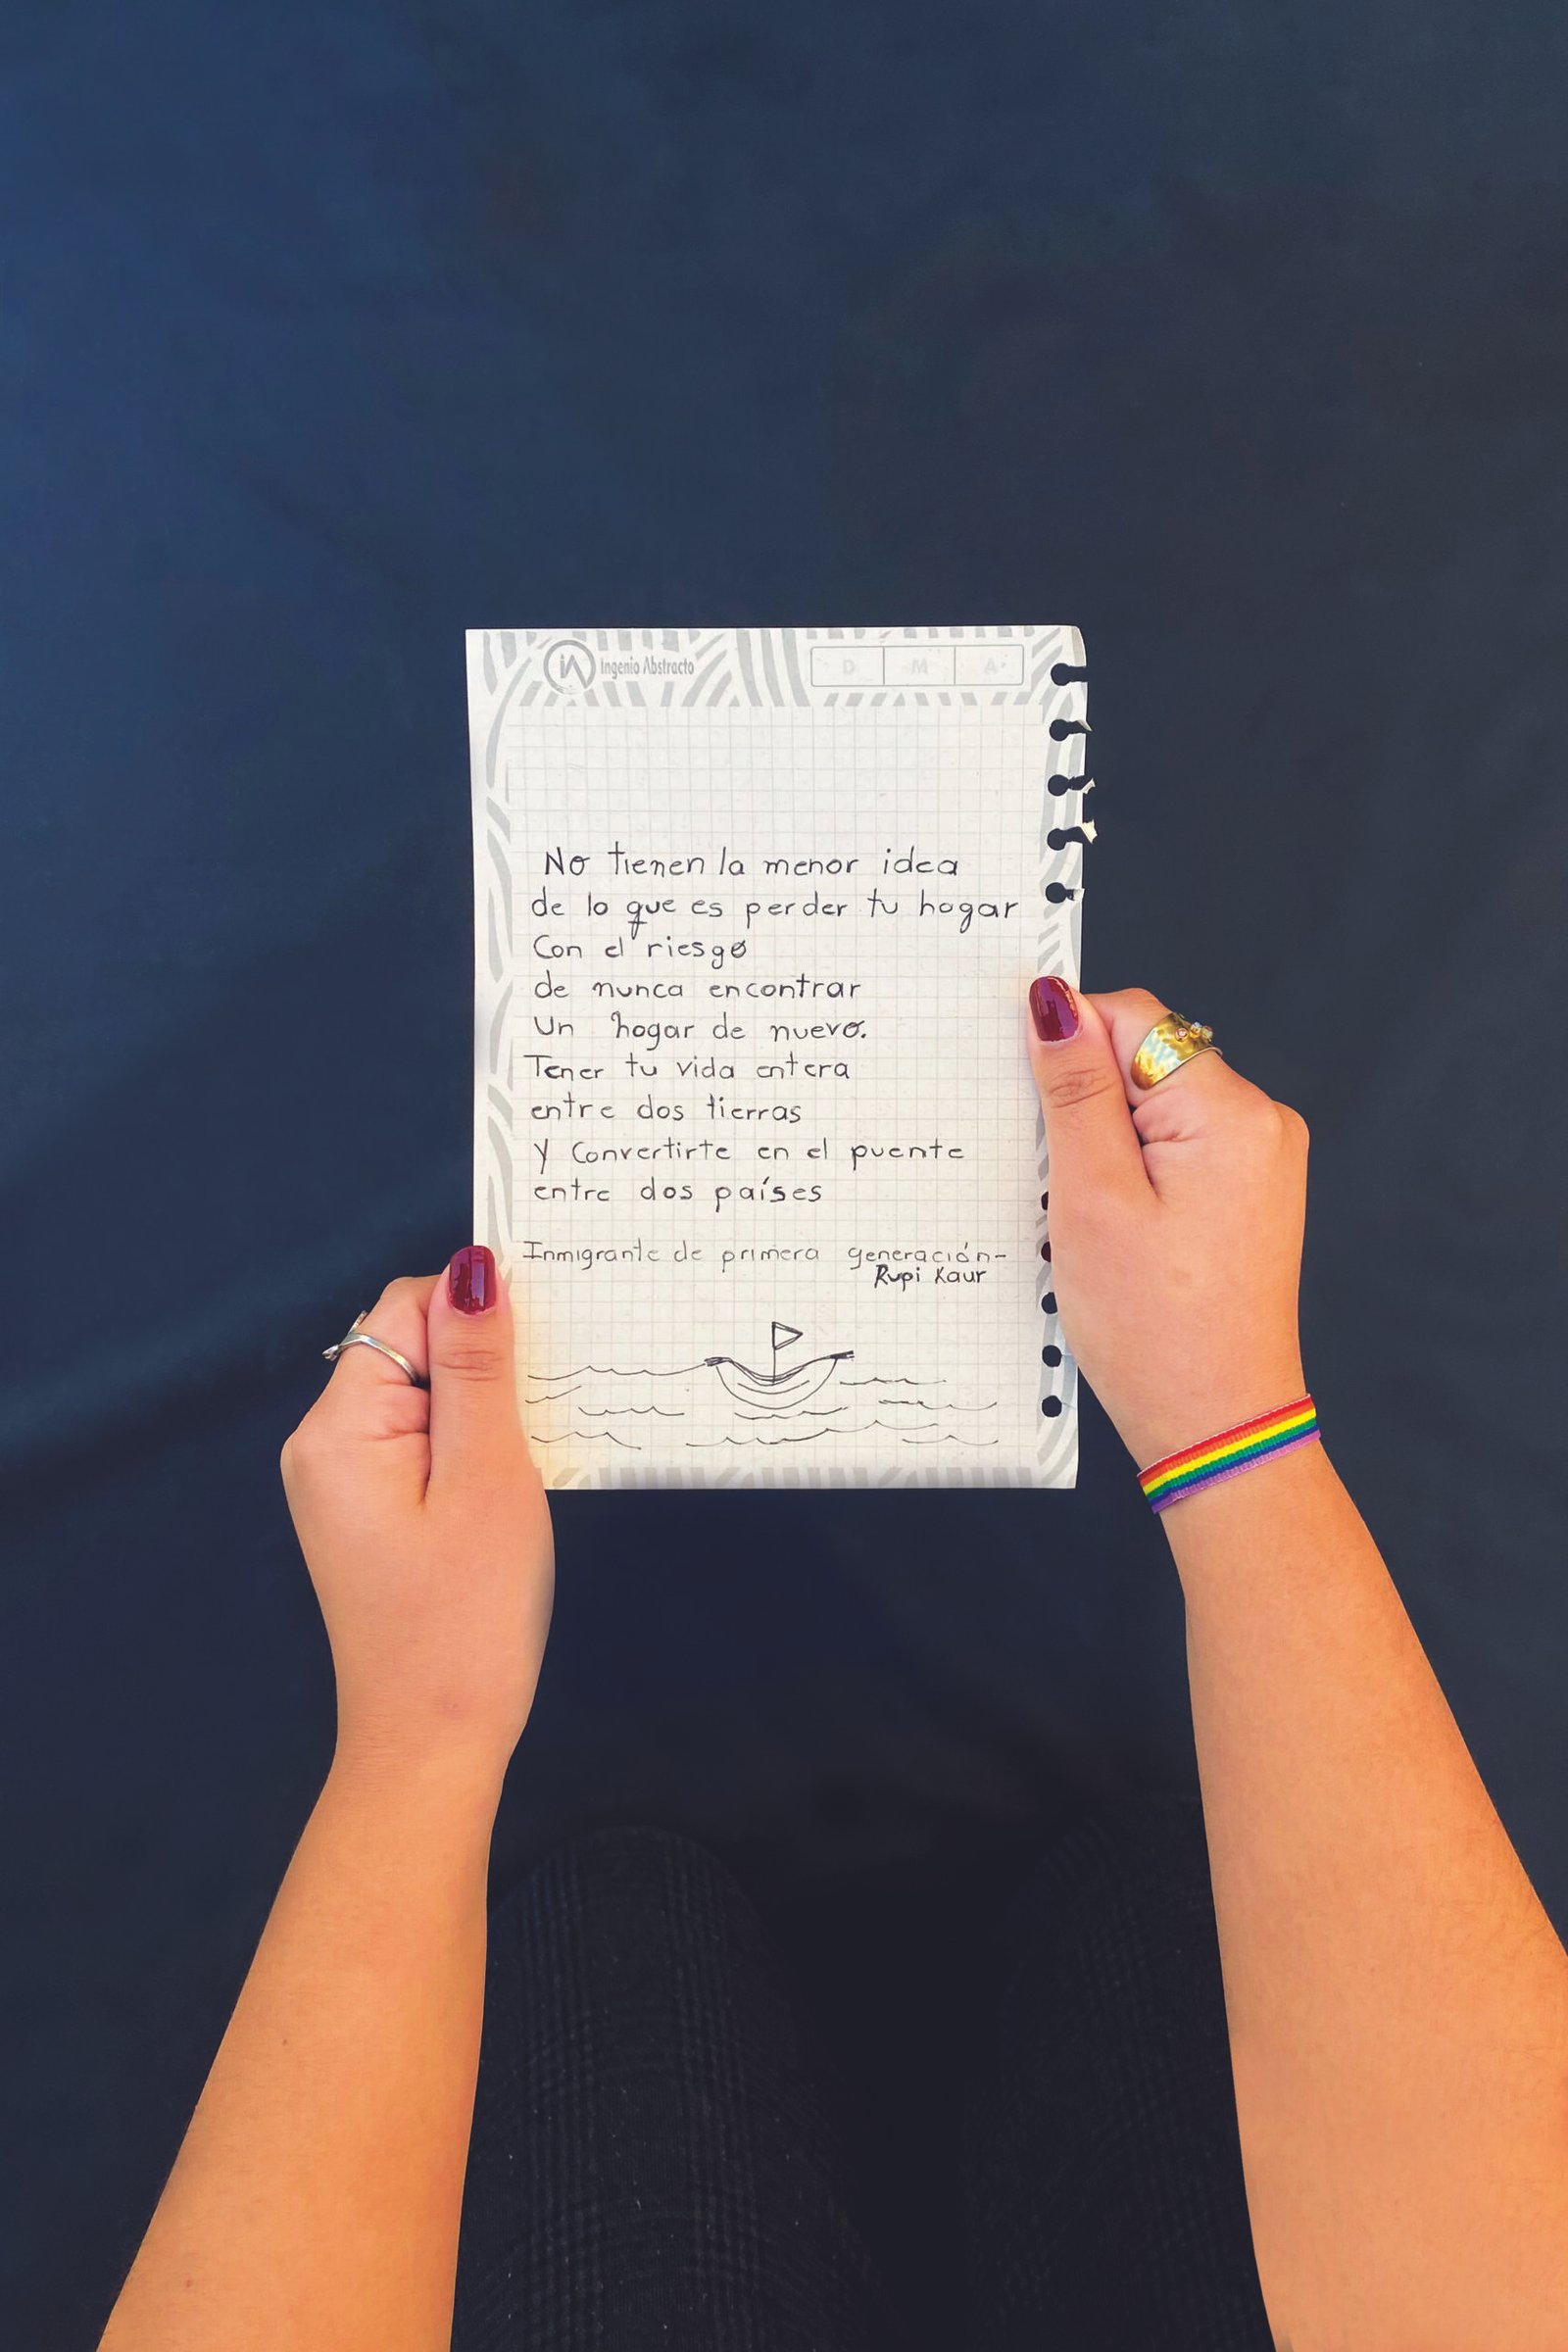 iA Ingenio Abstracto
D M A
No tienen la menor idea
de lo que es perder tu hogar
Con el riesgo
de nunca encontrar
Un hogar de nuevo.
Tener tu vida entera
entre dos tierras
y Convertirte en el puente
entre dos países
Inmigrante de primera generación-
Rupi Kaur